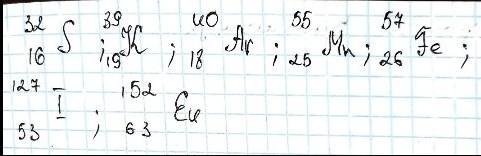 ³²₁₆S ; ³⁹₁₉K ; ⁴⁰₁₈Ar ; ⁵⁵₂₅Mn ; ⁵⁷₂₆Fe ;
¹²⁷₅₃I ; ¹⁵²₆₃Eu